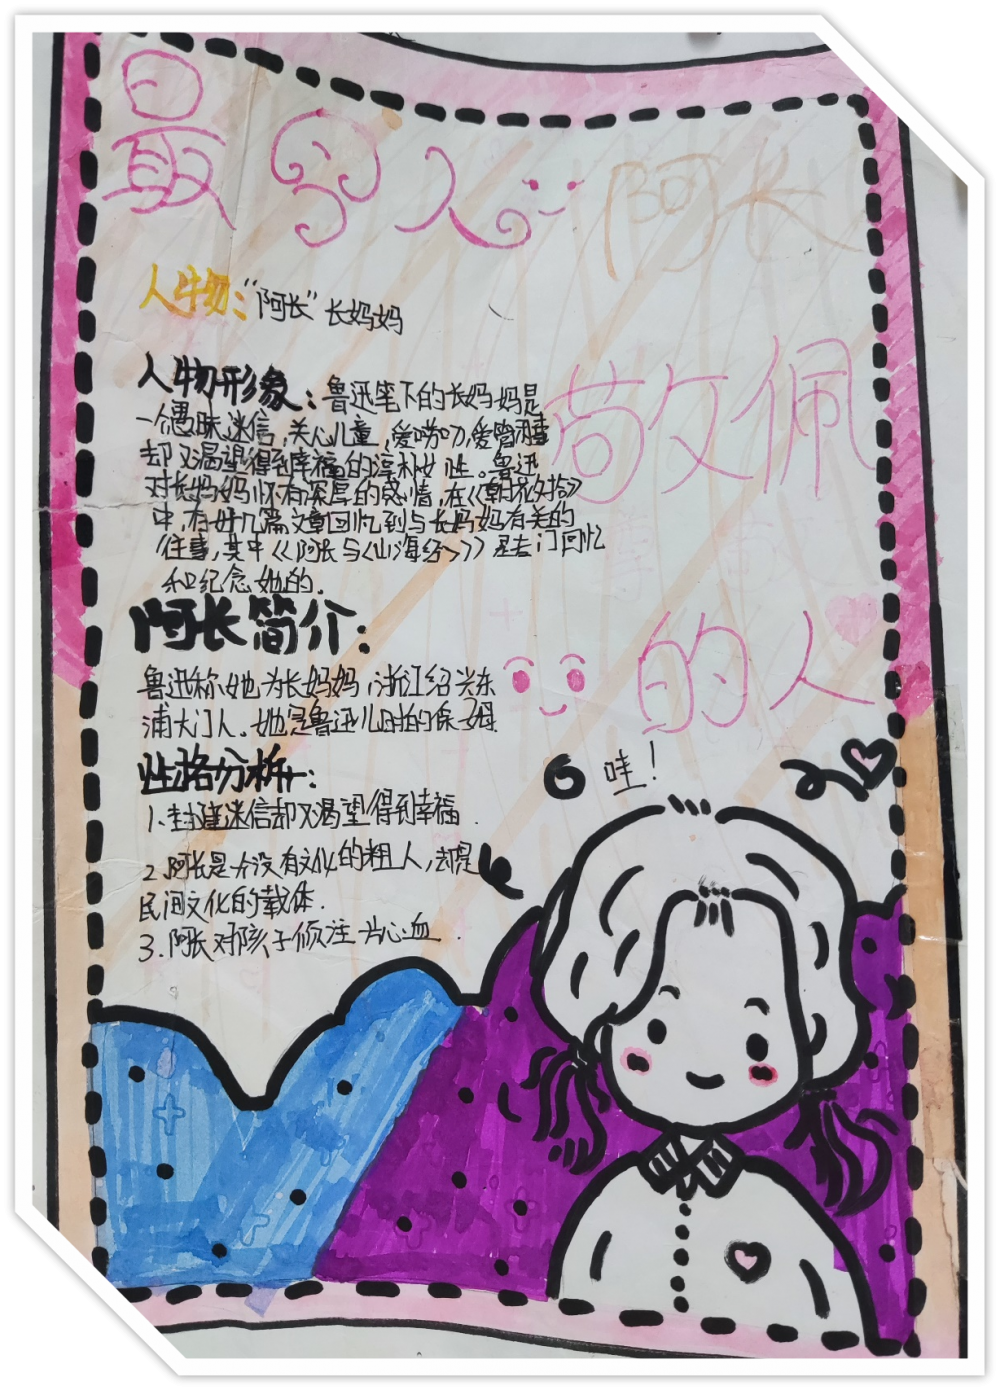 最令人 阿长
敬佩
的人
人物："阿长"长妈妈
人物形象：鲁迅笔下的长妈妈是
一个愚昧迷信，关心儿童，爱唠叨，爱管闲事
却又渴望得到幸福的淳朴女性。鲁迅
对长妈妈怀有深厚的感情，在《朝花夕拾》
中，有好几篇文章回忆到与长妈妈有关的
往事，其中《阿长与〈山海经〉》是专门回忆
和纪念她的.
阿长简介：
鲁迅称她为长妈妈，浙江绍兴东
浦大门人。她是鲁迅儿时的保姆.
性格分析：
1.封建迷信却又渴望得到幸福.
2.阿长是个没有文化的粗人，却是
民间文化的载体.
3.阿长对孩子倾注心血.
哇！